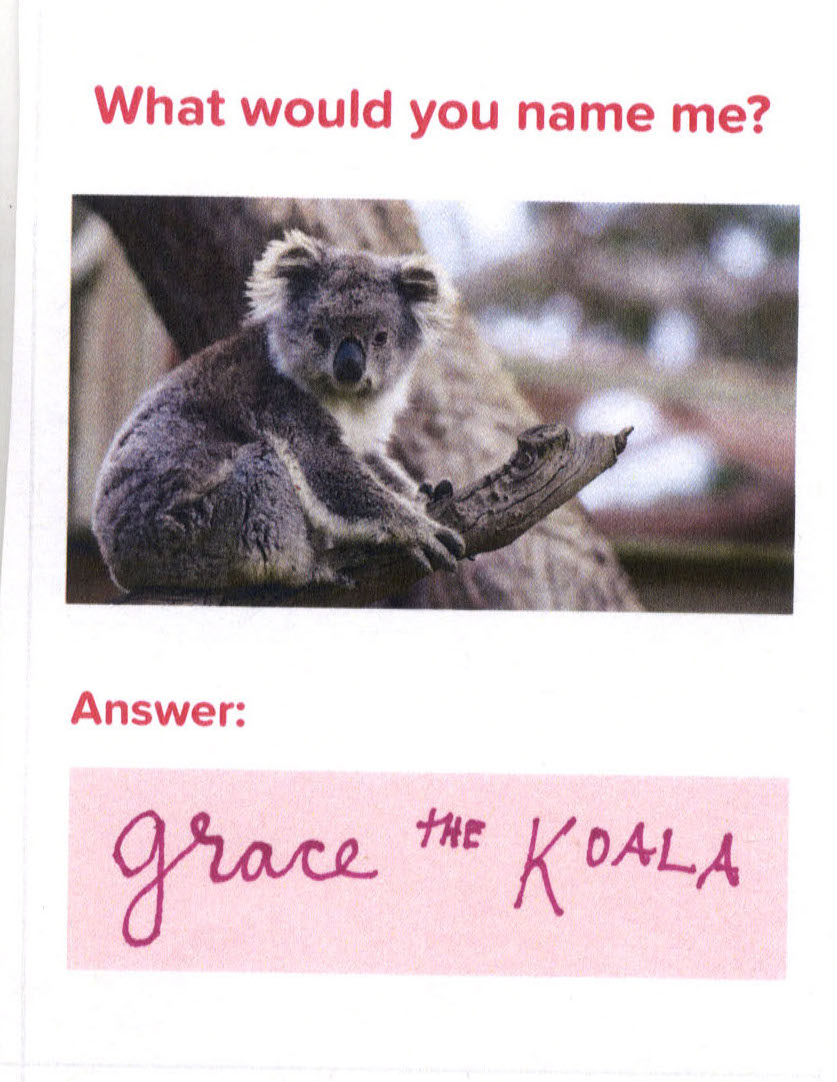 What would you name me?
Answer:
grace THE KOALA